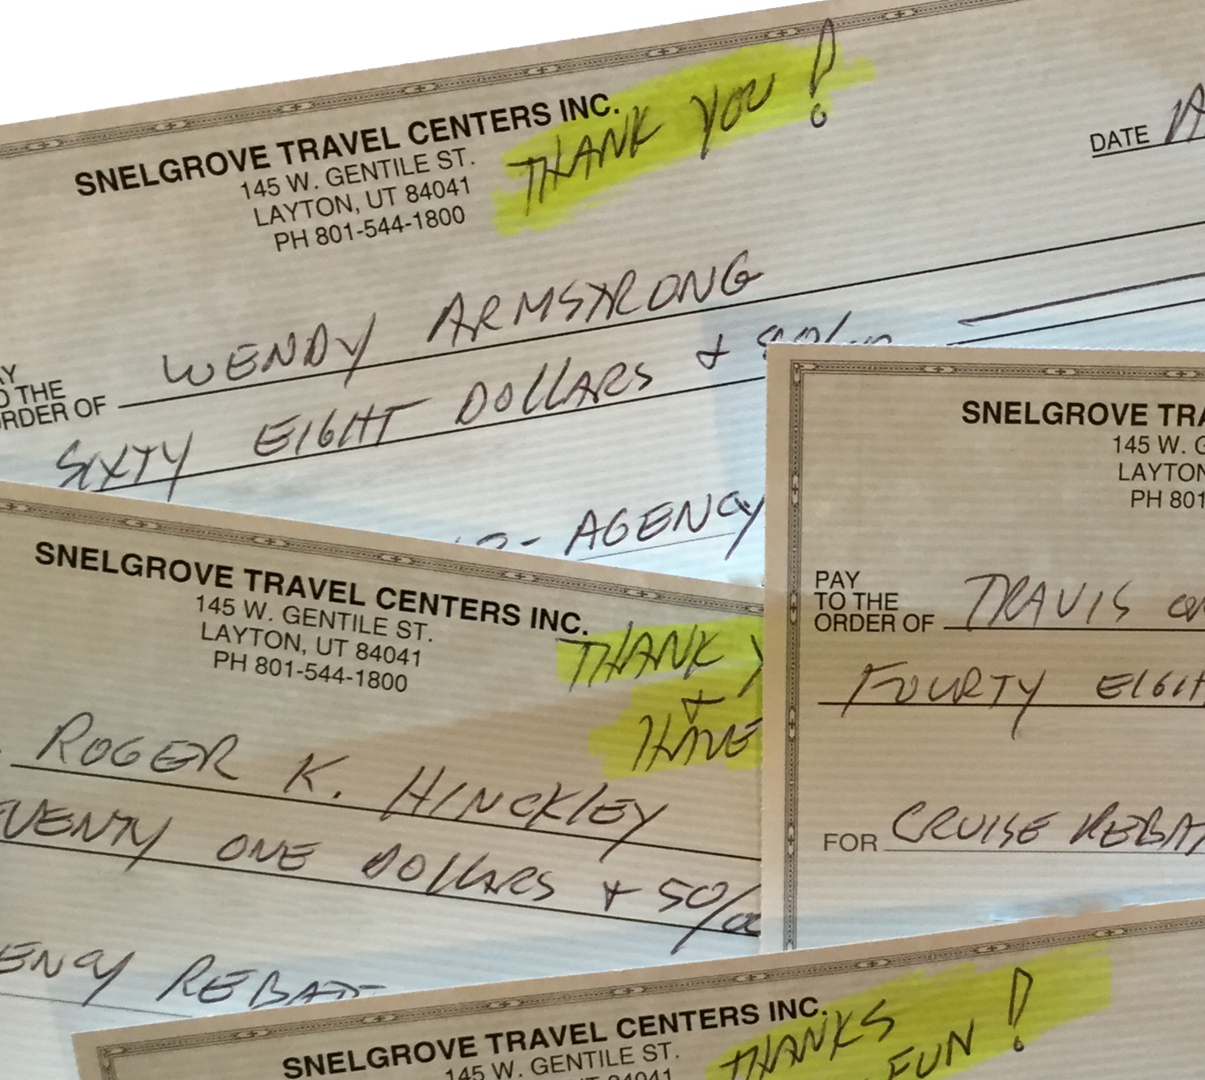 SNELGROVE TRAVEL CENTERS INC.
145 W. GENTILE ST.
LAYTON, UT 84041
PH 801-544-1800
THANK YOU!
DATE
TO THE
ORDER OF WENDY ARMSTRONG
SIXTY EIGHT DOLLARS +
- AGENCY
SNELGROVE TRAVEL CENTERS INC.
145 W. GENTILE ST.
LAYTON, UT 84041
PH 801-544-1800
THANK
+
HAVE
ROGER K. HINCKLEY
ONE DOLLARS + 50/
REBATE
SNELGROVE
145 W.
PH 801
PAY
TO THE
ORDER OF TRAVIS
FOURTY EIGHT
FOR CRUISE
SNELGROVE TRAVEL CENTERS INC.
145 W. GENTILE ST.
THANKS
FUN!